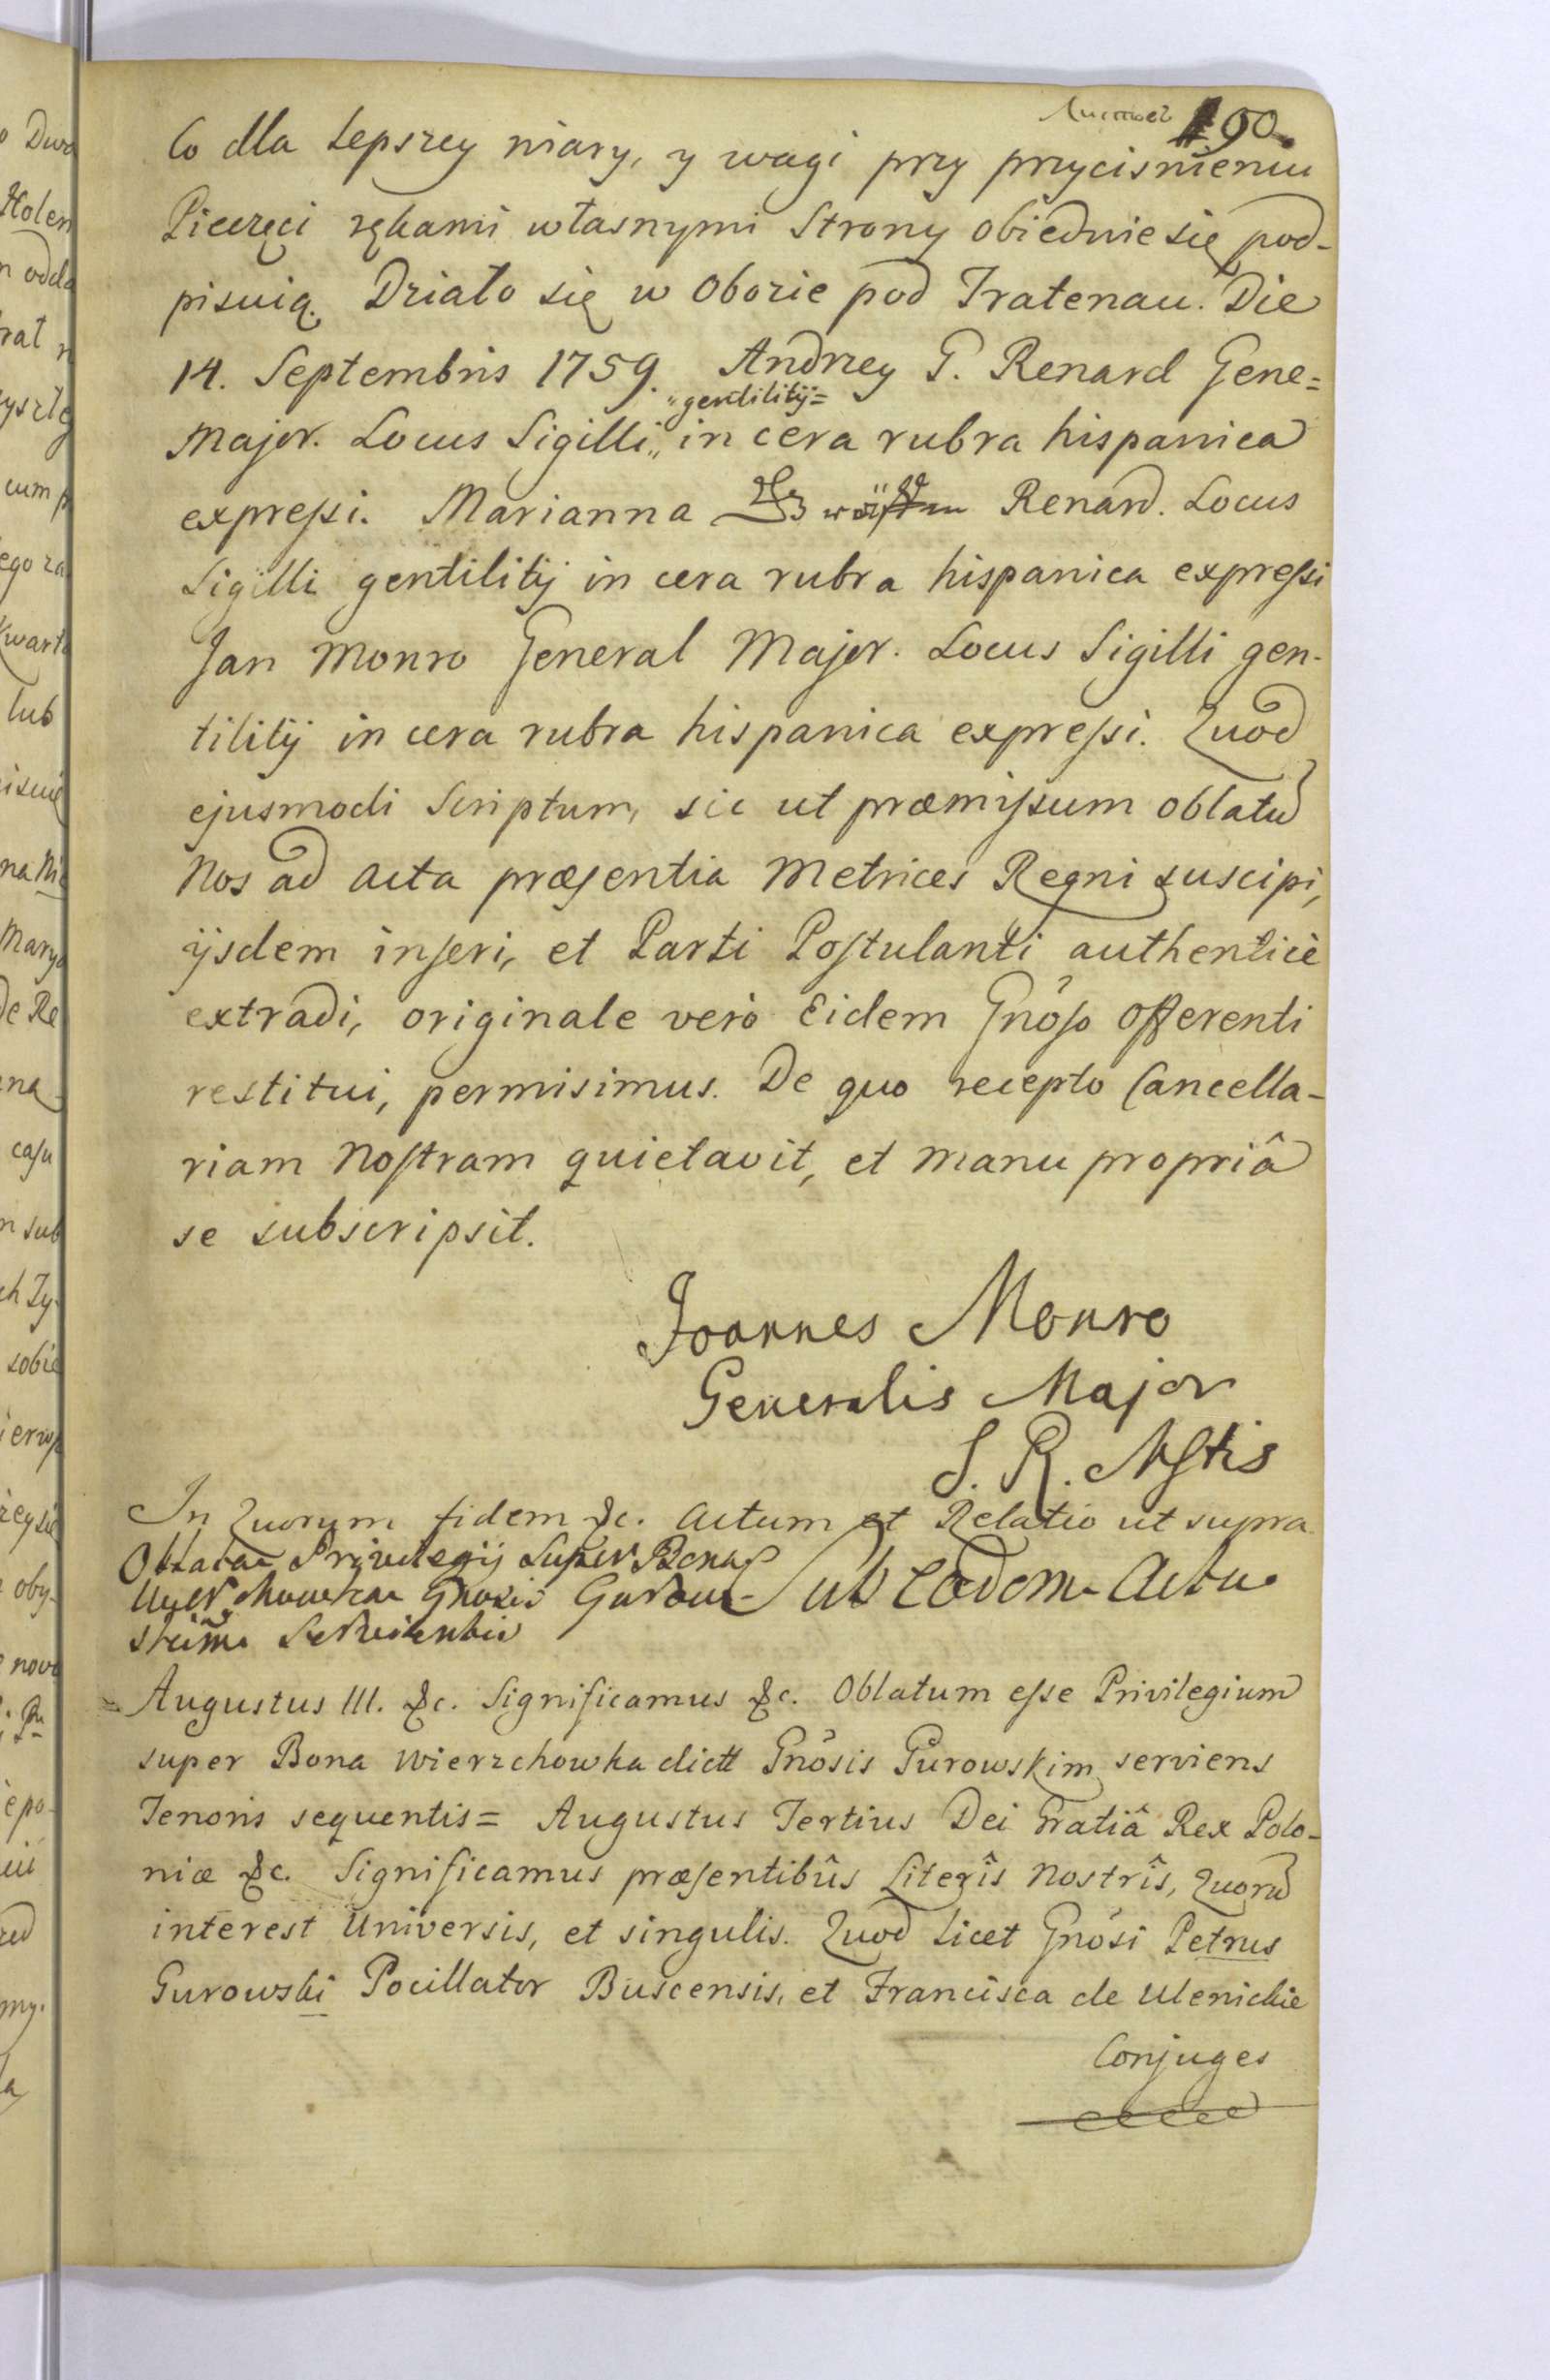 190.
Co dla Lepszey wiary, y wagi przy przycisnieniu
Pieczęci rękami własnymi Strony obiedwie się pod-
pisuią. Działo się w Obozie pod Tratenau. Die
14. Septembris 1759. Andrzey G. Renard Gene=
„gentilitÿ=
Major. Locus Sigilli„ in cera rubra hispanica
expreſsi. Marianna Renard. Locus
Sigilli gentilitÿ in cera rubra hispanica expreſsi
Jan Monro General Major. Locus Sigilli gen-
tilitÿ in cera rubra hispanica expreſsi. Quod
ejusmodi Scriptum, sic ut præmiſsum oblatũ
Nos ad Acta præſentia Metrices Regni suscipi,
ÿsdem inſeri, et Parti Poſtulanti authenticè
extradi, originale verò Eidem Gnõſo Offerenti
restitui, permisimus. De quo recepto Cancella-
riam Noſtram quietavit, et manu propriâ
se subscripsit.
Joannes Monro
Generalis Major
S. R. Mſtis
In Quorum fidem &c. Actum et Relatio ut supra
Oblatae Privilegÿ Super Bona
Gnosis Gurow-
skim Servientis
Sub Eodem Actu
Augustus III. &c. Significamus &c. Oblatum eſse Privilegium
super Bona Wierzchowka dictt Gnõsis Gurowskim serviens
Tenoris sequentis= Augustus Tertius Dei Gratiâ Rex Polo-
niæ &c. Significamus præſentibûs Literîs Nostrîs, Quorũ
interest Universis, et singulis. Quod Licet Gnõsi Petrus
Gurowski Pocillator Buscensis, et Francisca de Ulenickie
Conjuges